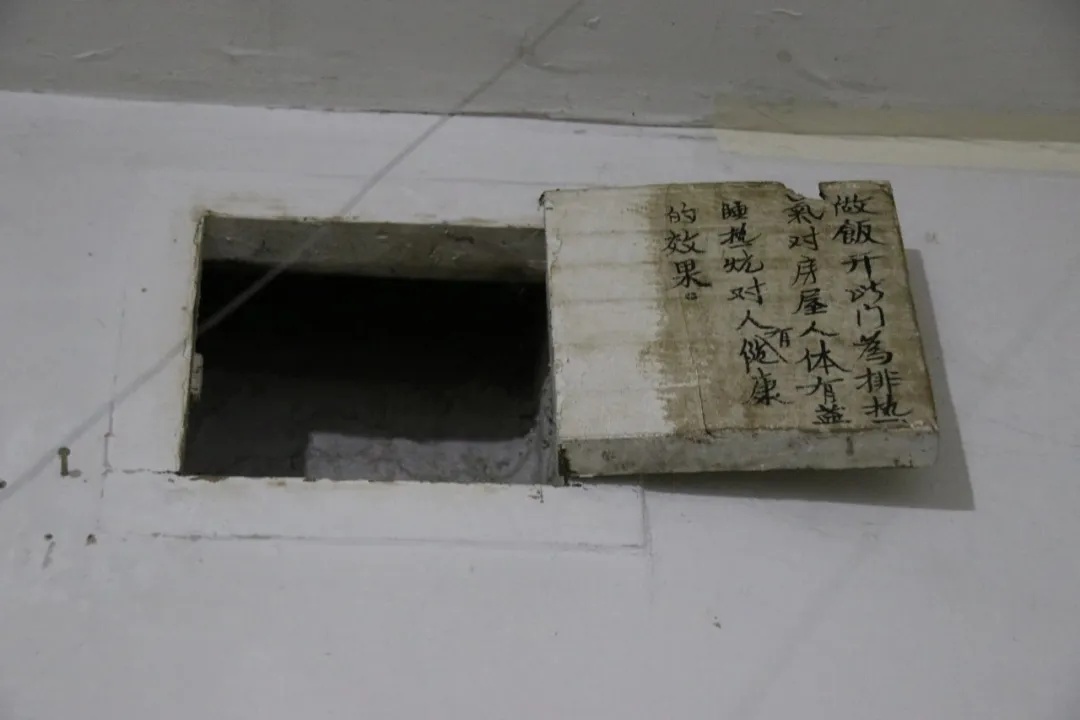 做飯开此门為排热
氣对房屋人体有益
睡热炕对人有健康
的效果。